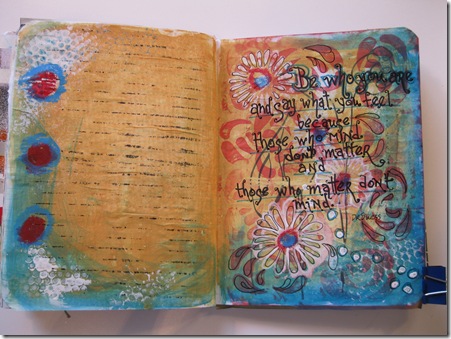 Be who you are
and say what you feel
because
those who mind
don't matter
and
those who matter don't
mind.